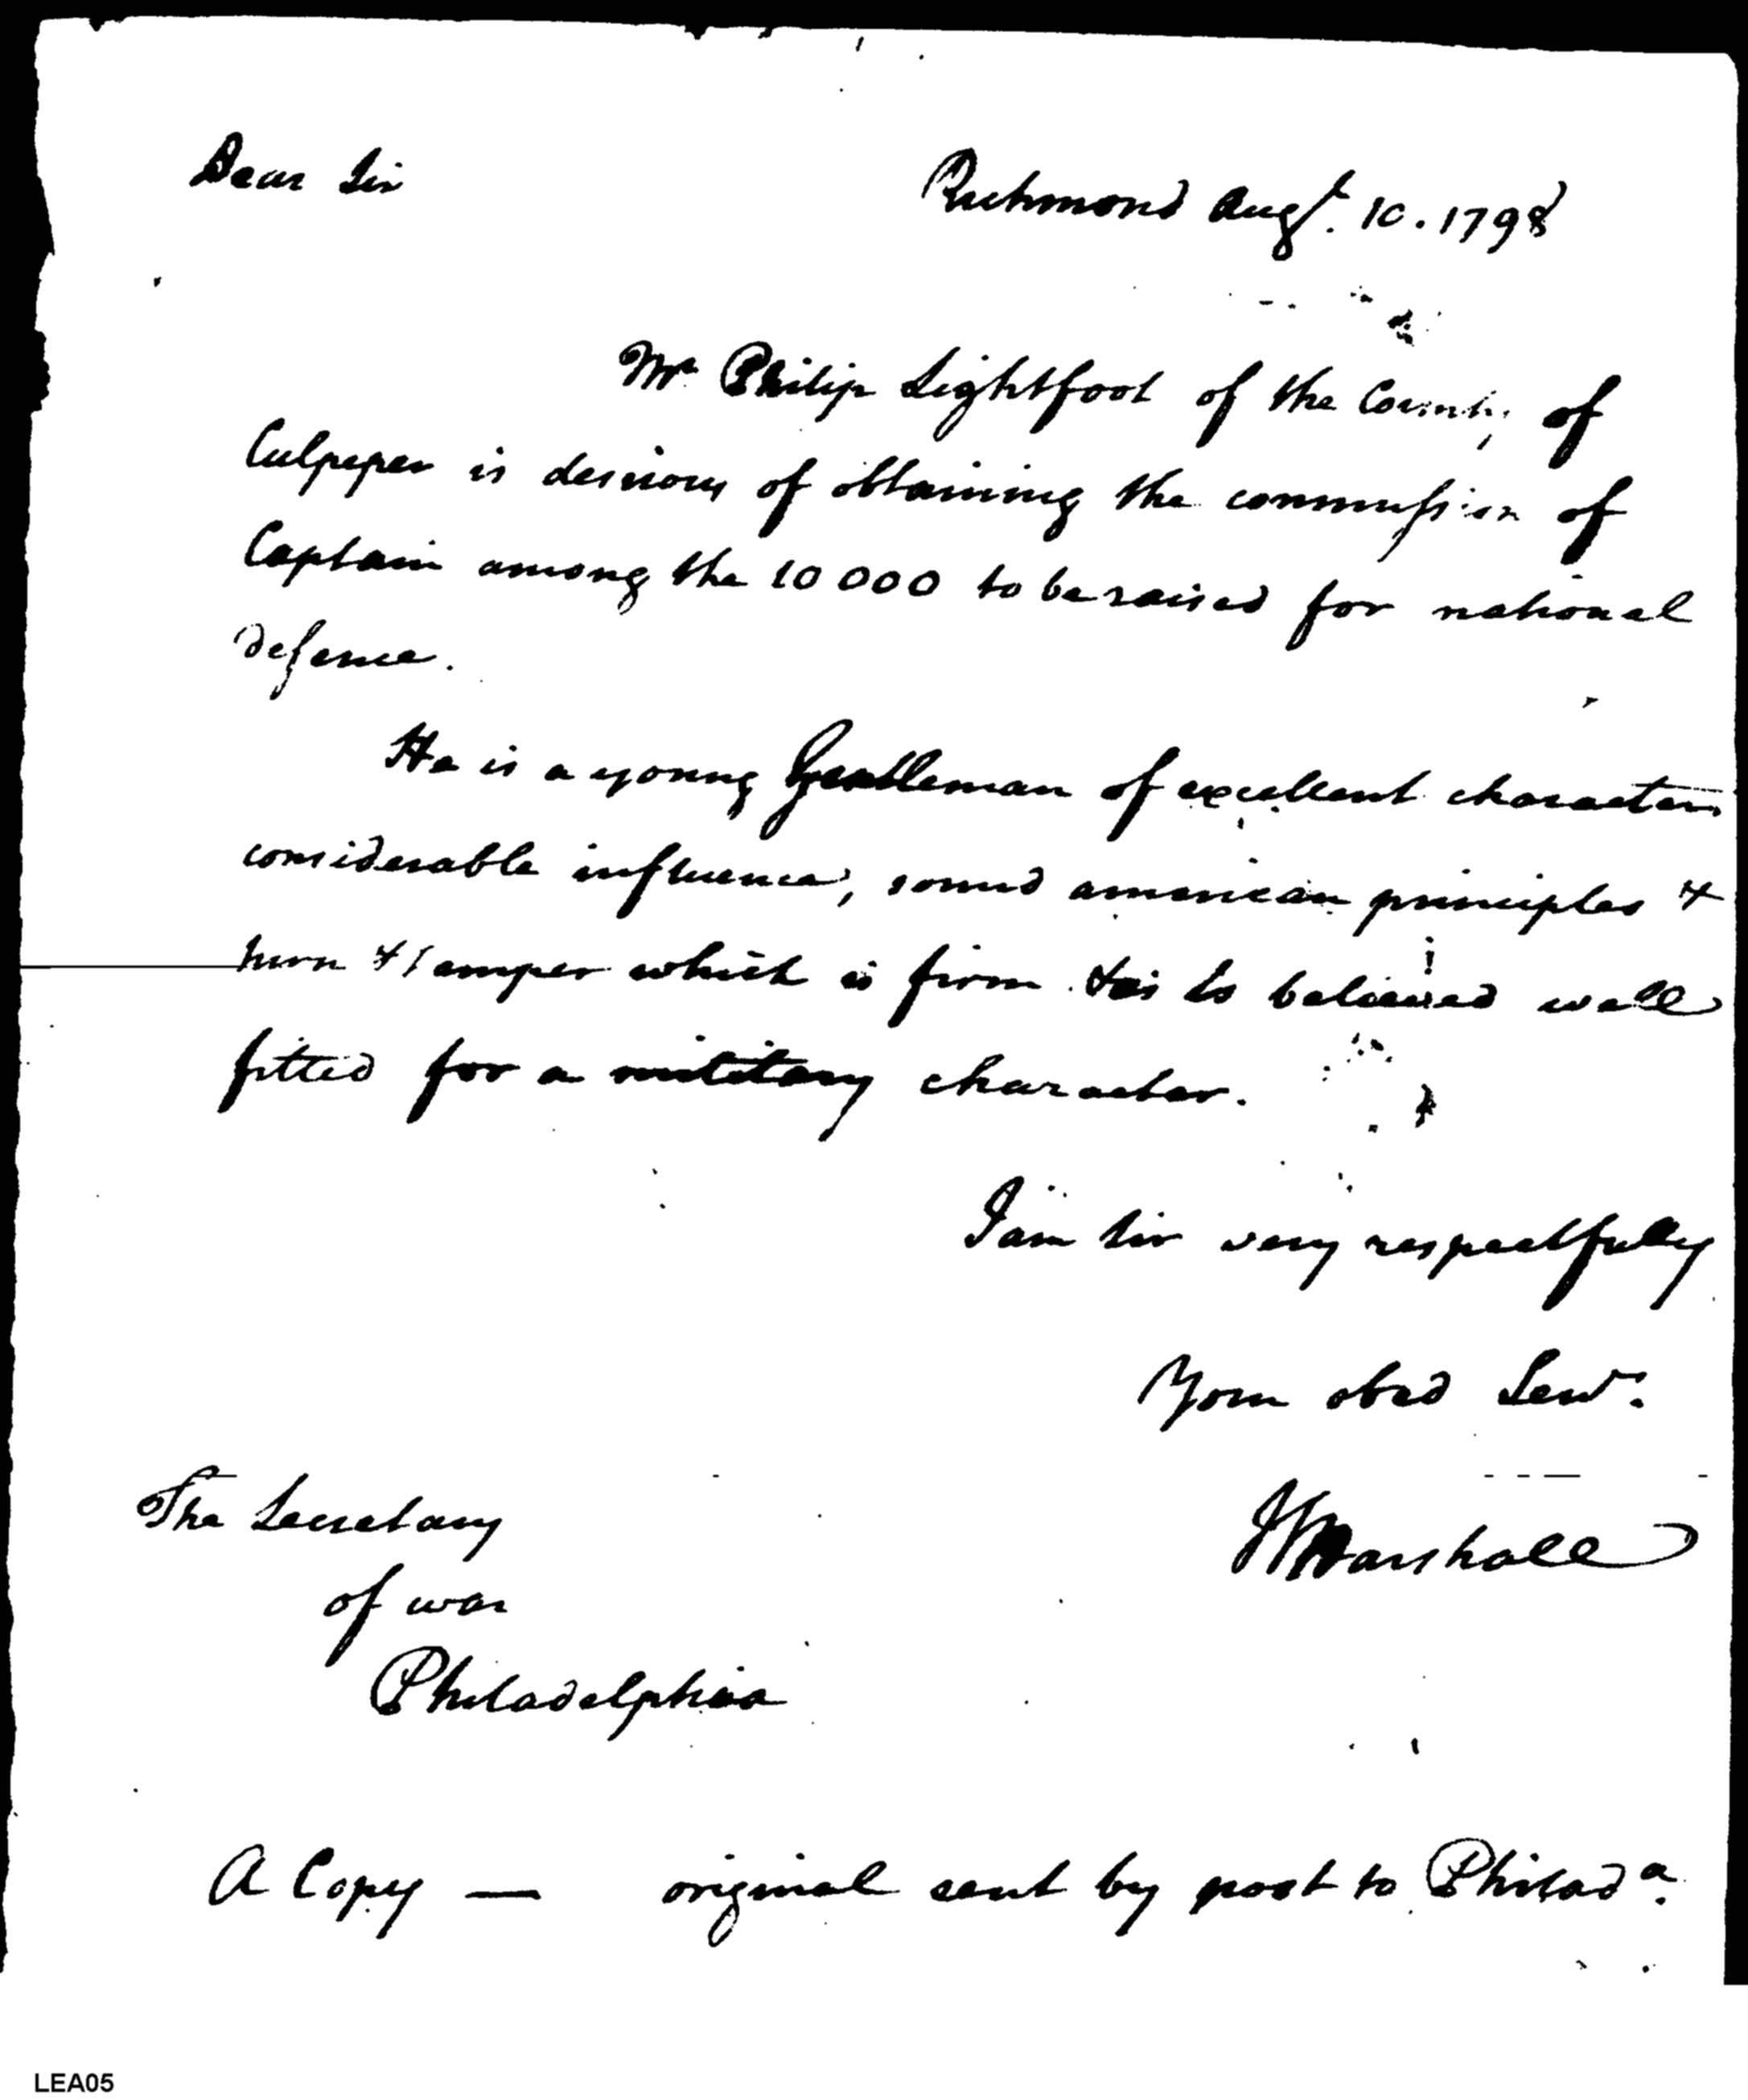 Dear Sir
Richmond Augt. 10. 1798
Mr. Philip Lightfoot of the County of
Culpeper is desirous of obtaining the commission of
Captain among the 10000 to be raised for national
defence.
He is a young Gentleman of excellent character,
considerable influence, sound american principles &
turn & temper which is firm is believed well
fitted for a military character.
I am Sir very respectfully
Your obed Servt.
J Marshall
The Secretary
of war
Philadelphia
A Copy — original sent by post to Philada.
LEA05